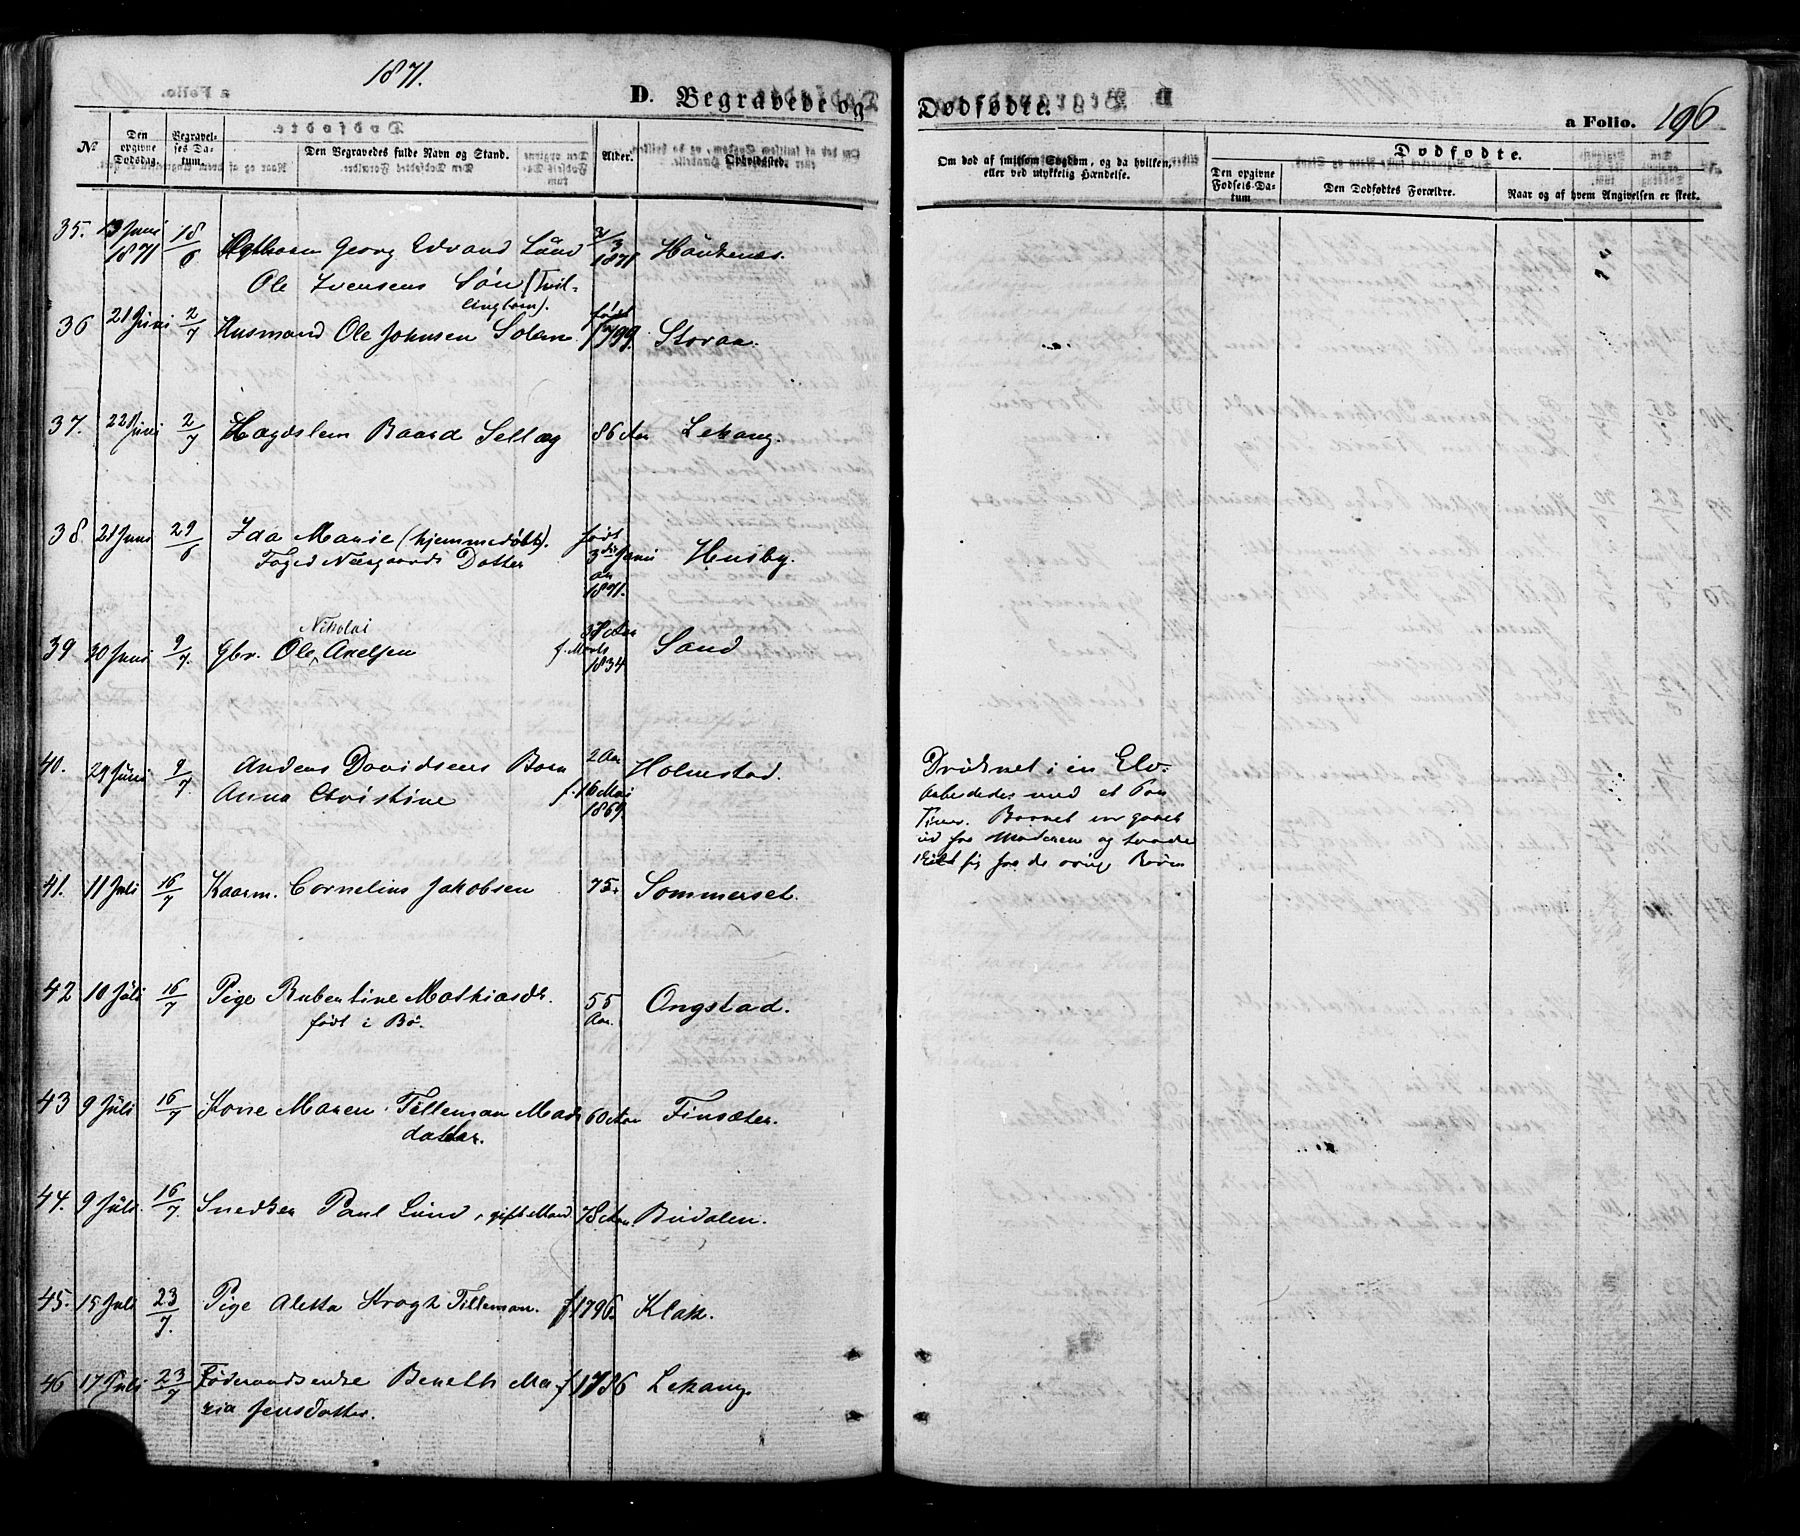 1871.
D. Begravede og Dødfødte.
a Folio. 196
No
Den opgivne Dødsdag.
Begravelses Datum.
Den Begravedes fulde Navn og Stand.
Alder.
Opholdssted.
Om død af smitsom Sygdom, og da hvilken, eller ved ulykkelig Hændelse.
Dødfødte.
Den opgivne Fødsels-Datum
Den Dødfødtes Forældre.
Naar og af hvem Angivelsen er skeet.
35. 13 Juni 1871 18/6 Georg Edvand Lund 3/3 1871 Haukenæs.
Ole Ivensens Søn (Tvillingbarn).
36 21 Juni 2/7 Husmand Ole Johnsen Solem født 1799. Storaa.
37. 22 Juni 2/7 Lægdslem Baard Sellæg 86 Aar Lekang.
38 21 Juni 29/6 Ida Marie (hjemmedøbt). født 3die Juni
Foged Neergaards Datter aar 1871. Husby.
39 30 Juni 9/7. Gbr. Ole Nikolai Axelsen f. Marts 1834 Sand
40. 29 Juni 9/7. Anders Davidsens Barn 2 Aar Holmstad.
Anna Christine f. 16 Mai 1869.
Druknet i en Elv.
Arbededes med et Par
Timer. Barnet var gaaet
ud fra Moderen og havde
skilt sig fra de øvrige Børn
41. 11 Juli 16/7 Kaarm. Cornelius Jakobsen 75 Sommerset.
42 10 Juli 16/7 Pige Rubentine Mathiasdr. 55 Aar. Ongstad.
født i Bø.
43 9 Juli 16/7 Kone Maren Tilleman Mads 60 Aar Finsæter.
datter.
44. 9 Juli. 16/7. Snedker Paul Lund, gift Mand 78 Aar. Budalen.
45. 15 Juli 23/7. Pige Aletta Krogh Tilleman. f 1796. Klak.
46 17 Juli 23/7 Føderaadsenke Bereth Ma- f 1786 Lekang.
ria Jensdatter.